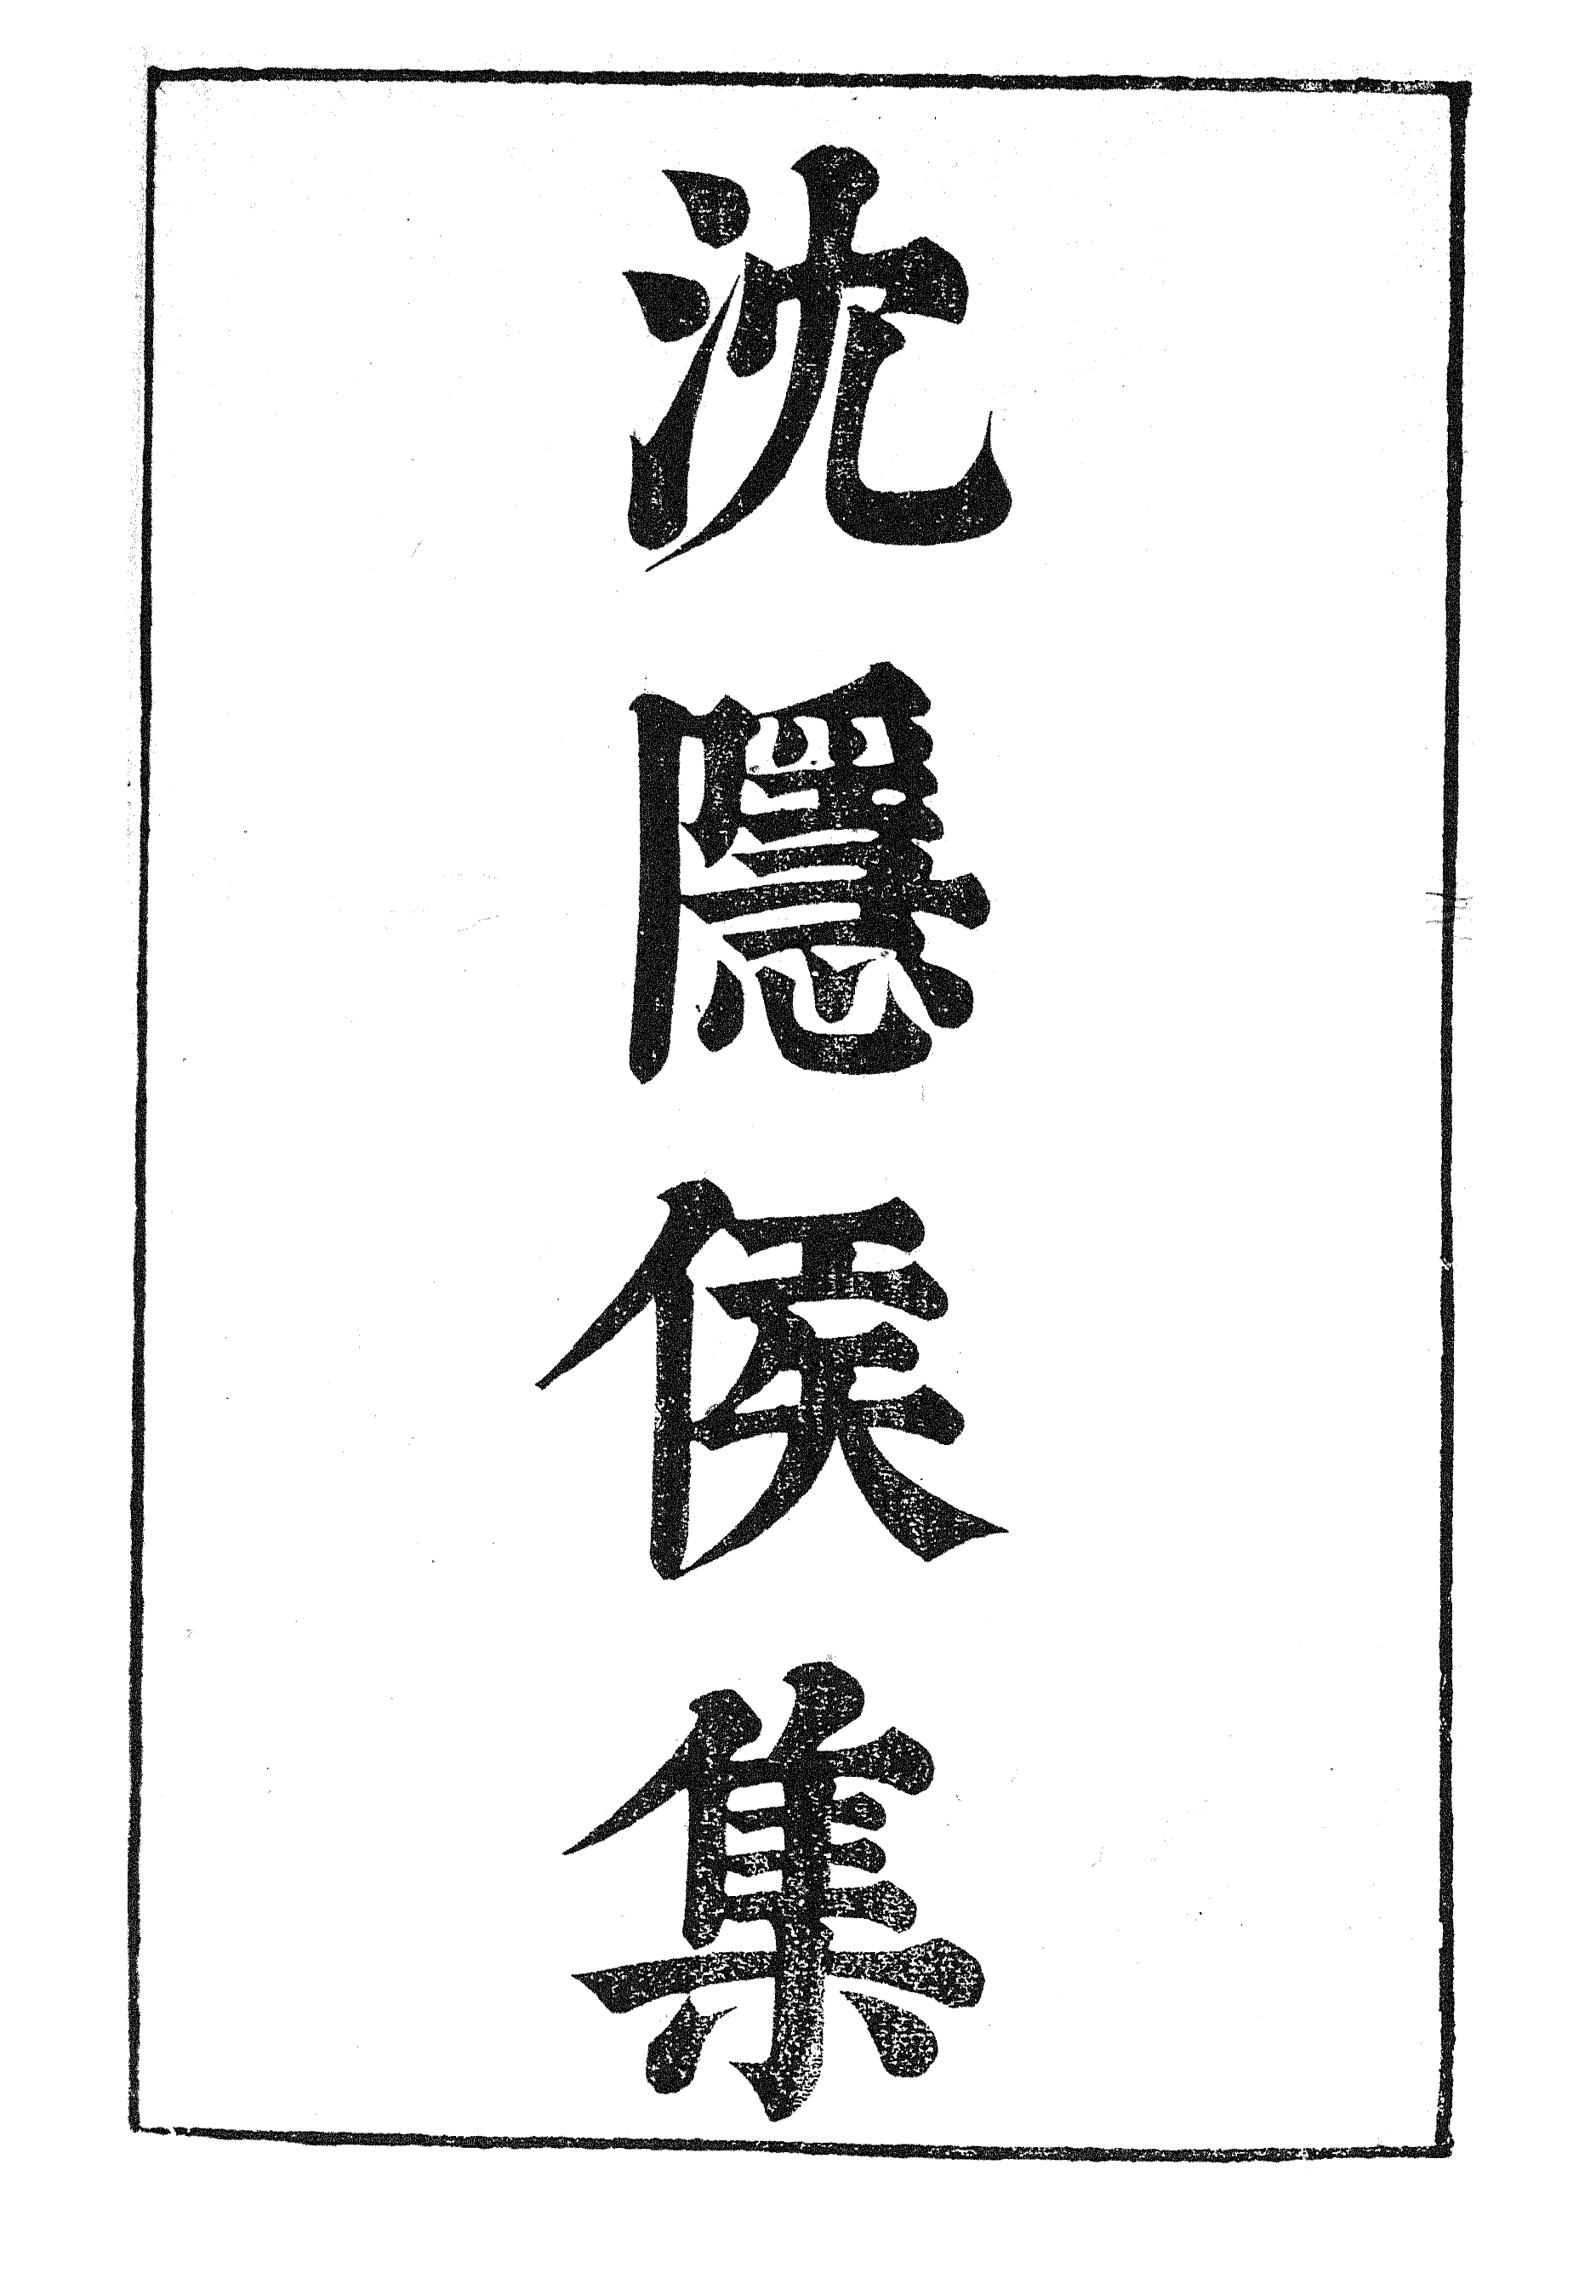 沈隱侯集